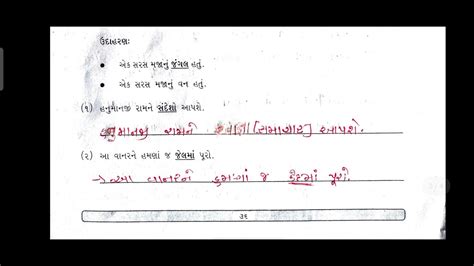 ઉદાહરણઃ
• એક સરસ મજાનું જંગલ હતું.
• એક સરસ મજાનું વન હતું.
(૧) હનુમાનજી રામને સંદેશો આપશે.
હનુમાનજી રામને [સમાચાર] આપશે.
(૨) આ વાનરને હમણાં જ જેલમાં પૂરો.
→ આ વાનરને હમણાં જ કેદમાં પૂરો.
૩૬